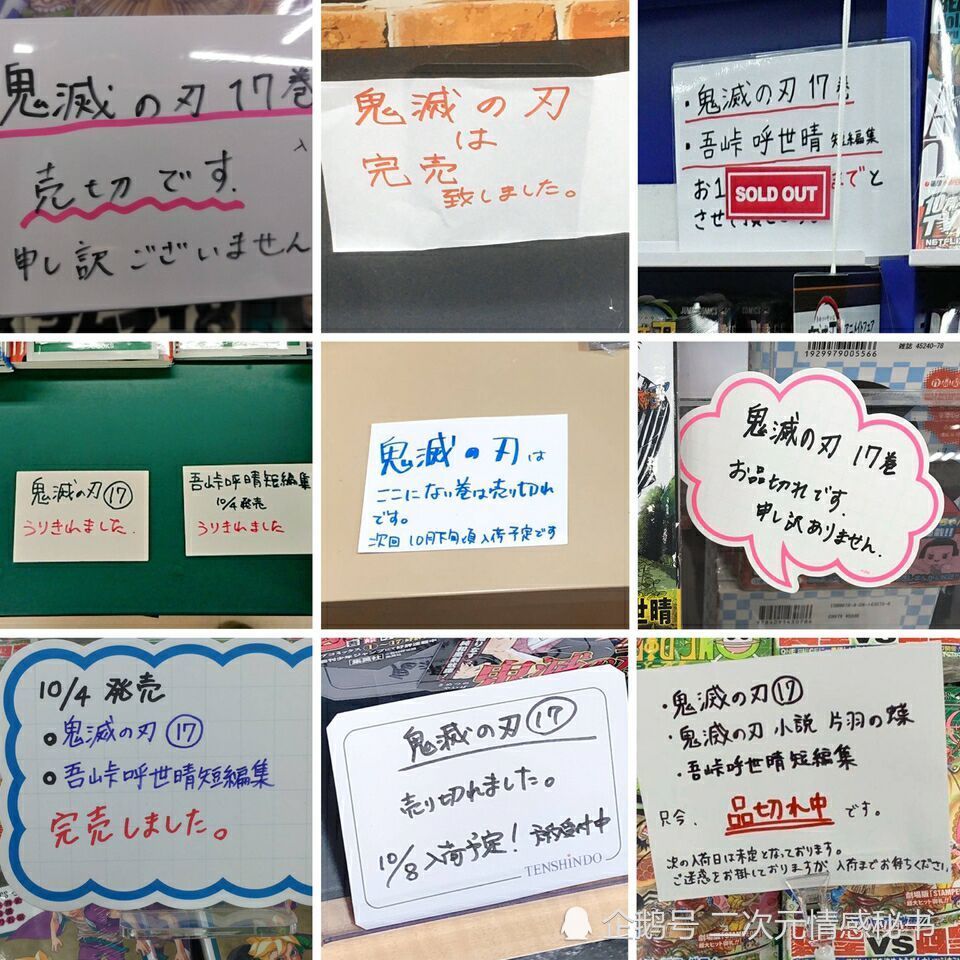 鬼滅の刃 17巻
入
売切です。
申し訳ございません
鬼滅の刃
は
完売
致しました。
・鬼滅の刃 17巻
・吾峠呼世晴 短編集
お1
までと
SOLD OUT
させて
NETFLIX
鬼滅の刃⑰
うりきれました。
吾峠呼世晴短編集
10/4発売
うりきれました
鬼滅の刃は
ここにない巻は売り切れ
です。
次回 10月下旬頃入荷予定です
1929979005566
雑誌 45240-78
鬼滅の刃 17巻
お品切れです。
申し訳ありません。
世晴
10/4 発売
鬼滅の刃 ⑰
吾峠呼世晴短編集
完売しました。
集英社
鬼滅の刃 ⑰
売り切れました。
10/8入荷予定! 予約受付中
TENSHINDO
VS
・鬼滅の刃⑰
・鬼滅の刃 小説 片羽の蝶
・吾峠呼世晴短編集
只今、品切れ中です。
次の入荷日は未定となっております。
ご迷惑をお掛しておりますが、入荷までお待ちください。
劇場版
STAMPE
VS
企鹅号 二次元情感秘书